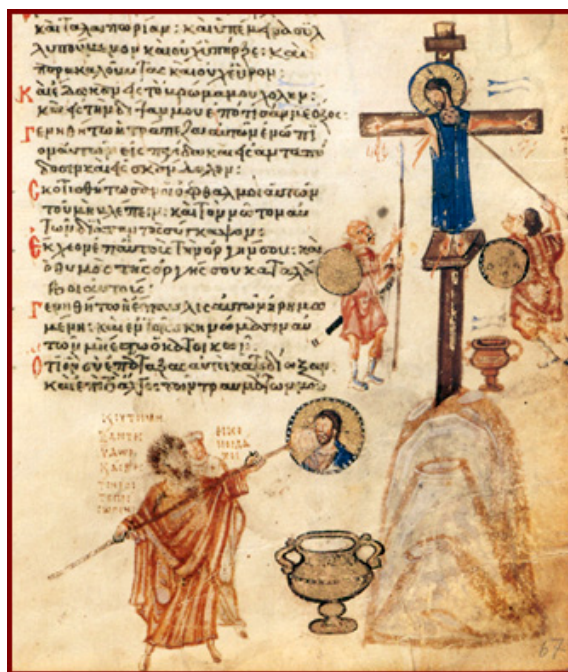 καὶ ταλαιπωρίαν: καὶ ὑπέμεινα συλ
λυπούμενον καὶ οὐχ ὑπῆρξε: καὶ
παρακαλοῦντας καὶ οὐχ εὗρον:
Καὶ ἔδωκαν εἰς τὸ βρῶμα μου χολήν:
καὶ εἰς τὴν δίψαν μου ἐπότισάν με ὄξος:
Γενηθήτω ἡ τράπεζα αὐτῶν ἐνώπι
ον αὐτῶν εἰς παγίδα καὶ εἰς ἀνταπό
δοσιν καὶ εἰς σκάνδαλον:
Σκοτισθήτωσαν οἱ ὀφθαλμοὶ αὐτῶν
τοῦ μὴ βλέπειν: καὶ τὸν νῶτον αὐ
τῶν διὰ παντὸς σύγκαμψον:
Ἔκχεον ἐπ αὐτοὺς τὴν ὀργήν σου: καὶ
ὁ θυμὸς τῆς ὀργῆς σου καταλά
βοι αὐτούς:
Γενηθήτω ἡ ἔπαυλις αὐτῶν ἠρημω
μένη: καὶ ἐν τοῖς σκηνώμασιν αὐ
τῶν μὴ ἔστω ὁ κατοικῶν:
Ὅτι ὃν σὺ ἐπάταξας αὐτοὶ κατεδίωξαν:
καὶ ἐπὶ τὸ ἄλγος τῶν τραυμάτων μου
67